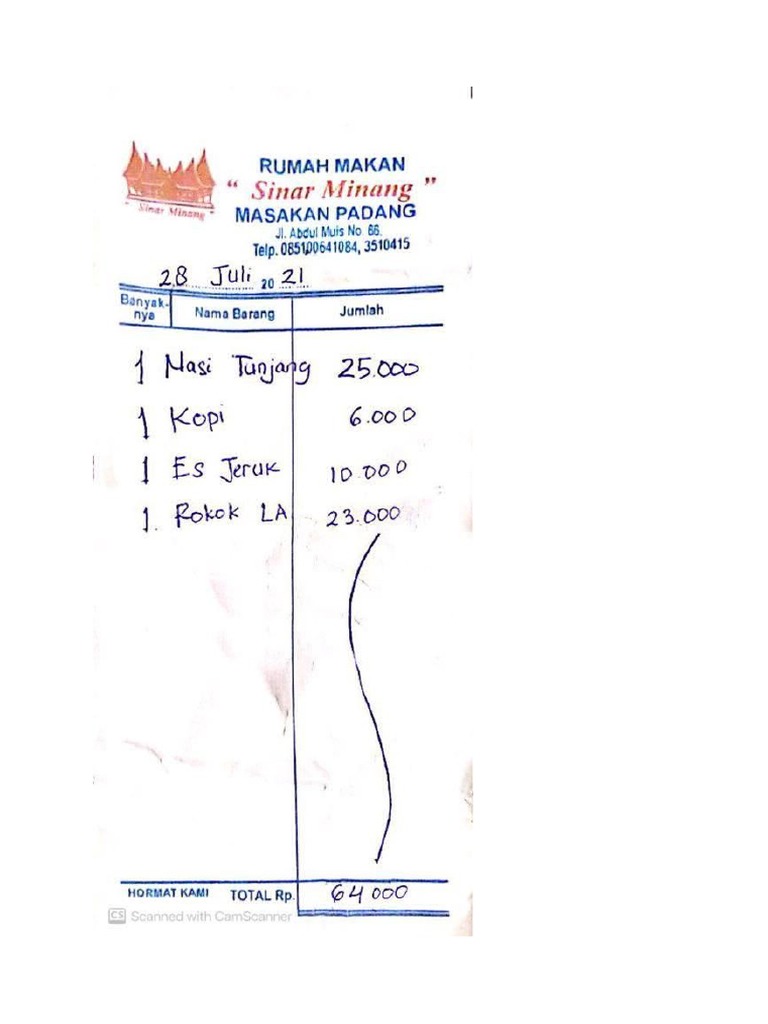 RUMAH MAKAN
“ Sinar Minang ”
MASAKAN PADANG
Jl. Abdul Muis No. 66.
Telp. 085100641084, 3510415
" Sinar Minang "
28 Juli 2021
Banyak-nya Nama Barang Jumlah
1 Nasi Tunjang 25.000
1 Kopi 6.000
1 Es Jeruk 10.000
1. Rokok LA 23.000
HORMAT KAMI TOTAL Rp. 64 000
CS Scanned with CamScanner